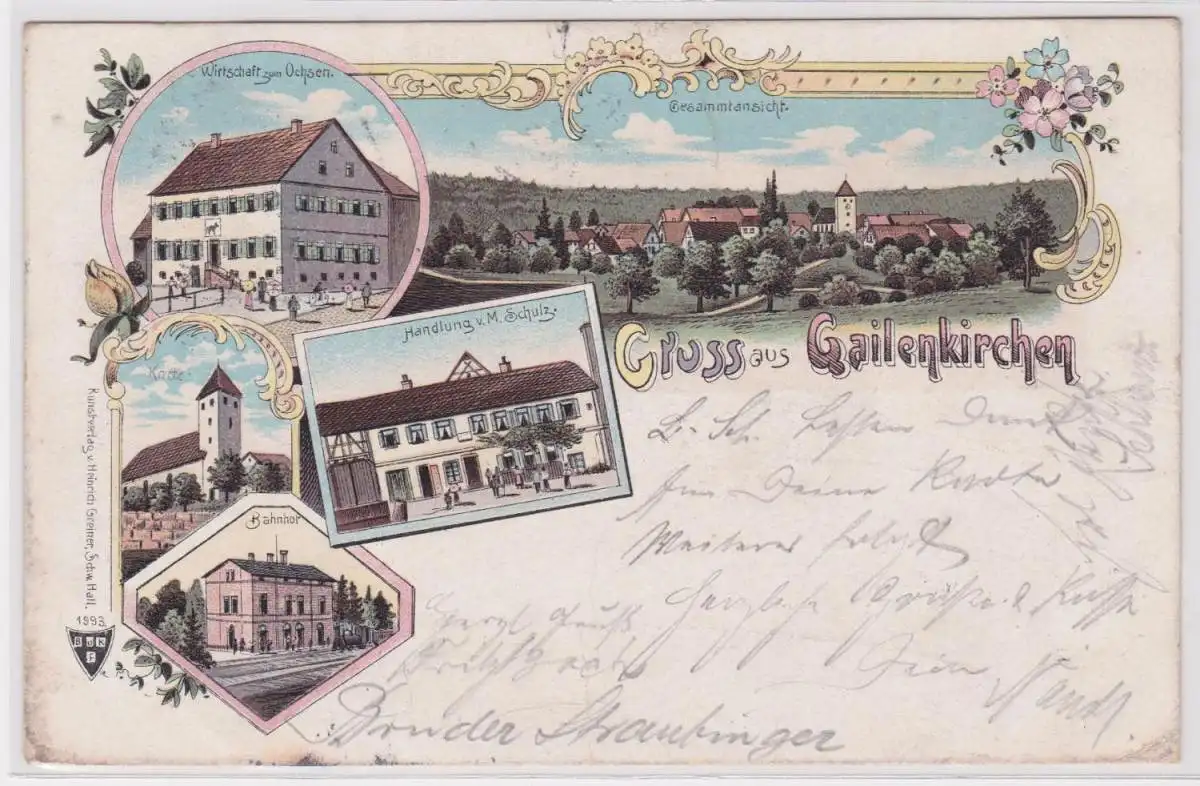 Wirtschaft zum Ochsen.
Gesammtansicht.
Handlung v. M. Schulz.
Gruss aus Gailenkirchen
Kirche
Bahnhof
Kunstverlag v. Heinrich Greiner, Schw. Hall.
1993
B. Sch. Besten Dank
für Deine Karte
Weiteres folgt
Herzliche Grüsse & Küsse
Dein
Bruder Straubinger